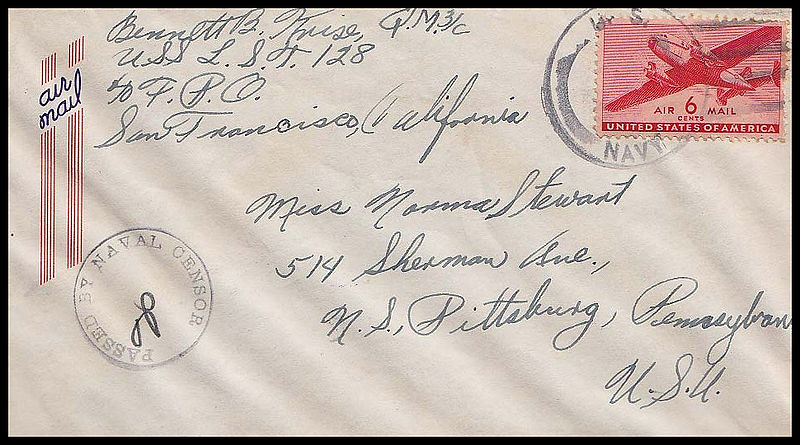 Bennett B. Kruse, Q.M.3/c
U.S.S L.S.T. 128
℅ F.P.O.
San Francisco, California
air
mail
U. S.
NAVY
AIR 6 MAIL
CENTS
UNITED STATES OF AMERICA
Miss Norma Stewart
514 Sherman Ave.,
N.S., Pittsburg, Pennsylvan
U.S.A.
PASSED BY NAVAL CENSOR